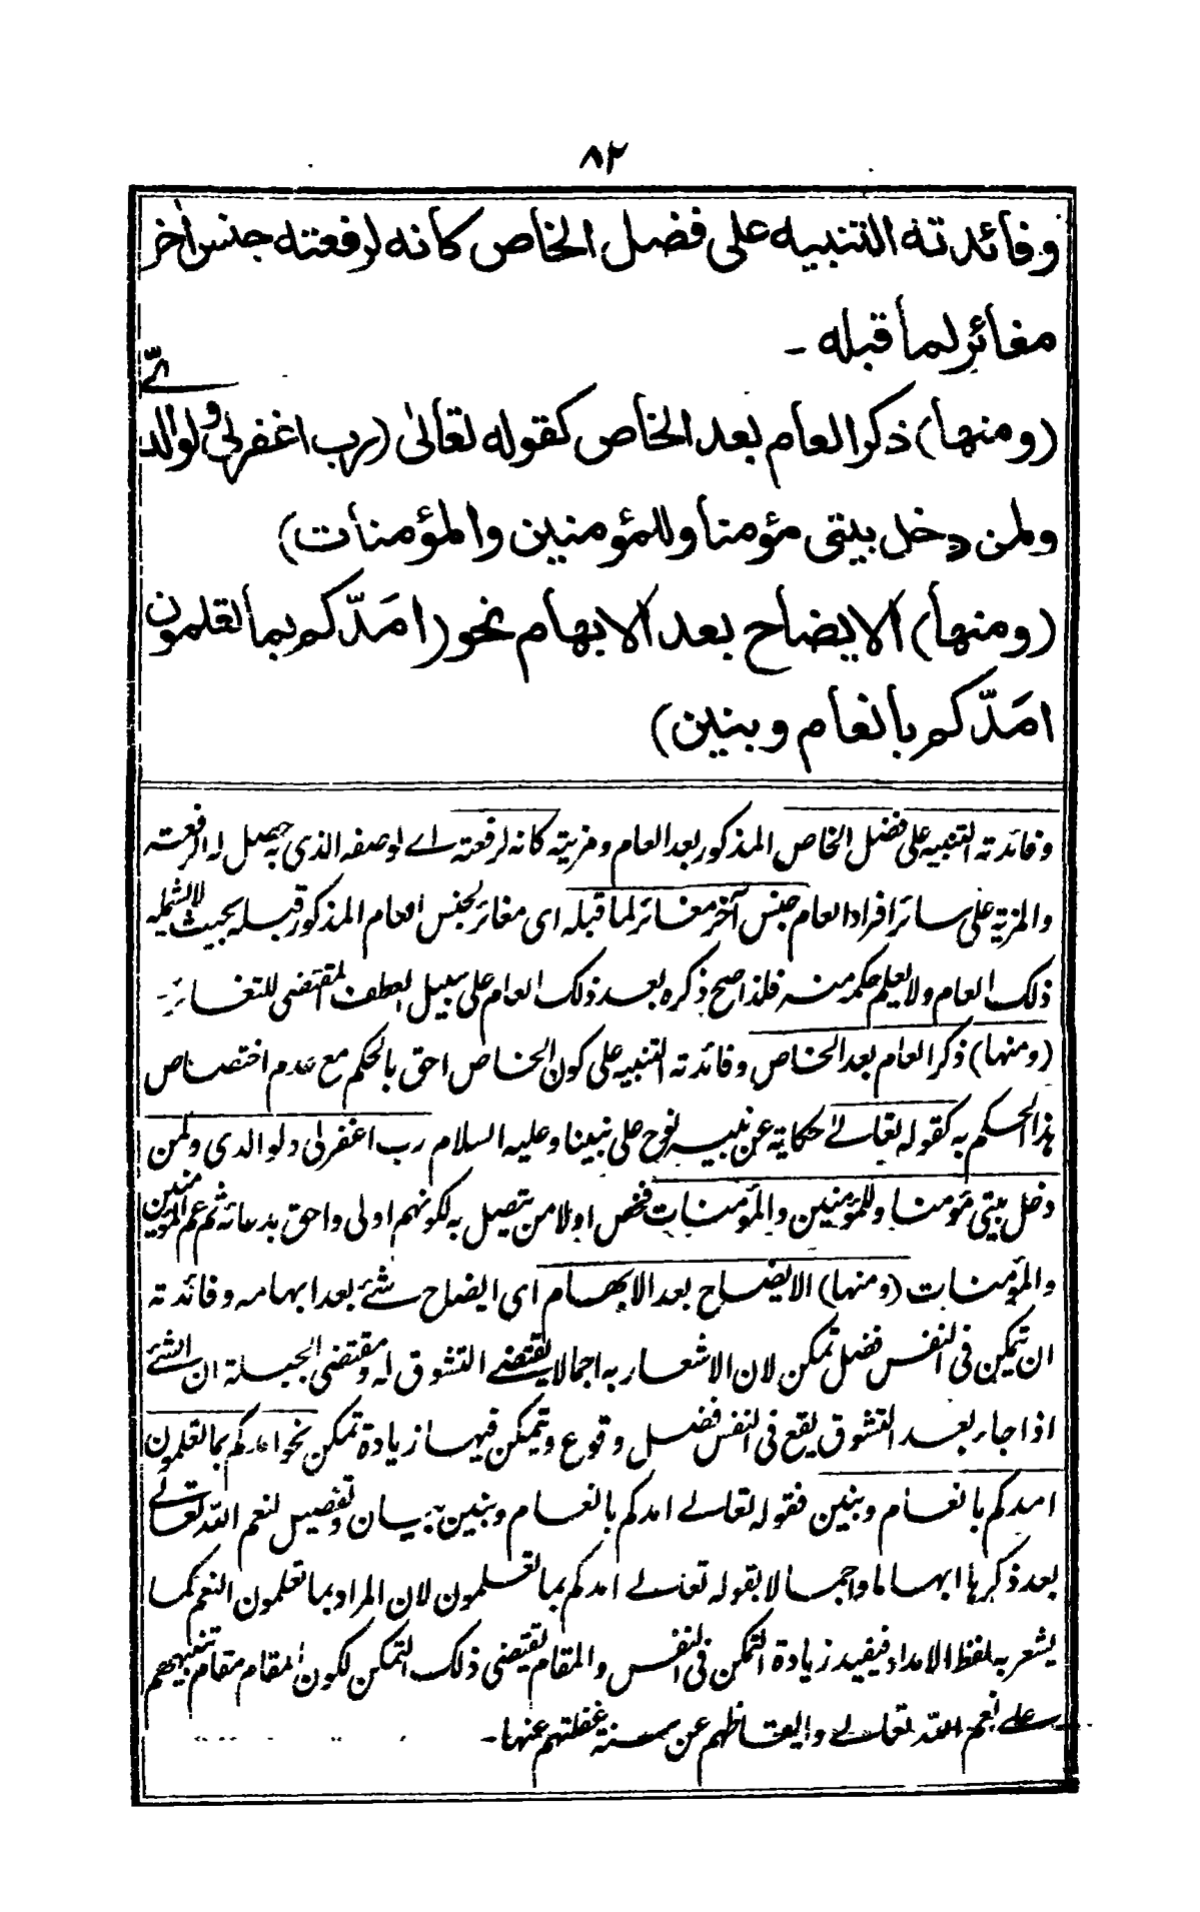 ٨٢
وفائدته التنبيه على فضل الخاص كانه لرفعته جنس اٰخر
مغائر لما قبله -
(ومنها) ذكر العام بعد الخاص كقوله تعالىٰ (رب اغفرلى ولوالدىّ
ولمن دخل بيتى مؤمنا وللمؤمنين والمؤمنات)
(ومنها) الايضاح بعد الابهام نحو (امَدّكم بما تعلمون
امَدّكم بانعام وبنين)
وفائدته التنبيه على فضل الخاص المذكور بعد العام ومزيته كانه لرفعته اے لوصفه الذى به يحصل له الرفعته
والمزية على سائر افراد العام جنس آخر مغائر لما قبله اى مغائر لجنس العام المذكور قبله بحيث لا يشمله
ذلك العام ولا يعلم حكمه منه فلذا صح ذكره بعد ذلك العام على سبيل العطف المقتضى للتغائر -
(ومنها) ذكر العام بعد الخاص وفائدته التنبيه على كون الخاص احق بالحكم مع عدم اختصاص
هذا الحكم به كقوله تعالےٰ حكاية عن نبيه نوح على نبينا وعليه السلام رب اغفرلى ولوالدى ولمن
دخل بيتى مؤمنا وللمؤمنين والمؤمنات فخص اولا من يتصل به لكونهم اولى واحق بدعائه ثم عم المؤمنين
والمؤمنات (ومنها) الايضاح بعد الابهام اى ايضاح شئے بعد ابهامه وفائدته
ان يتمكن فى النفس فضل تمكن لان الاشعار به اجمالا يقتضے التشوق له ومقتضى الجبلة ان الشئے
اذا جاء بعد التشوق يقع فى النفس فضل وقوع ويتمكن فيها زيادة تمكن نحو امدكم بما تعلمون
امدكم بانعام وبنين فقوله تعالے امدكم بانعام وبنين بيان وتفصيل لنعم اللّٰه تعالے
بعد ذكرها ابهاما واجمالا بقوله تعالے امدكم بما تعلمون لان المراد بما تعلمون النعم كما
يشعر به لفظ الامداد فيفيد زيادة التمكن فى النفس والمقام يقتضى ذلك التمكن لكون المقام مقام تنبيههم
علے نعم اللّٰه تعالے وايقاظهم عن سنة غفلتهم عنها -